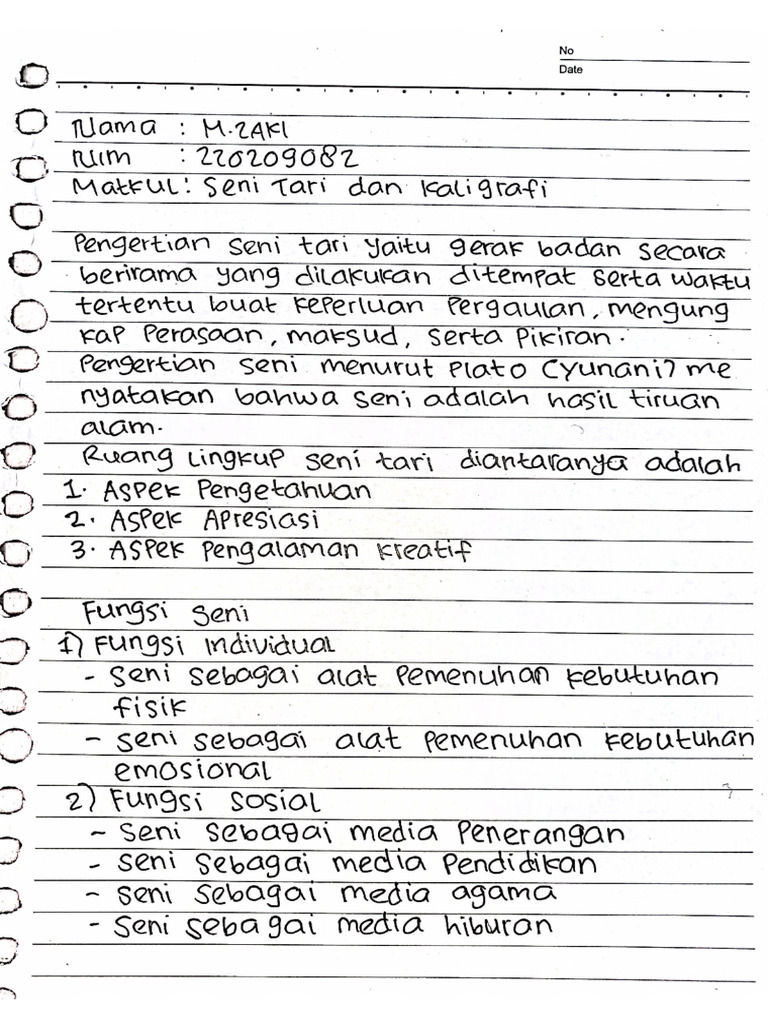 No
Date
Nama : M.ZAKI
Nim : 220209082
Matkul: Seni Tari dan Kaligrafi
Pengertian seni tari yaitu gerak badan secara
berirama yang dilakukan ditempat serta waktu
tertentu buat keperluan pergaulan, mengung
kap perasaan, maksud, serta pikiran.
Pengertian seni menurut Plato (Yunani) me
nyatakan bahwa seni adalah hasil tiruan
alam.
Ruang lingkup seni tari diantaranya adalah
1. Aspek Pengetahuan
2. Aspek Apresiasi
3. Aspek pengalaman kreatif
Fungsi seni
1) Fungsi individual
- seni sebagai alat pemenuhan kebutuhan
fisik
- seni sebagai alat pemenuhan kebutuhan
emosional
2) Fungsi sosial
- seni sebagai media penerangan
- seni sebagai media pendidikan
- seni sebagai media agama
- seni sebagai media hiburan